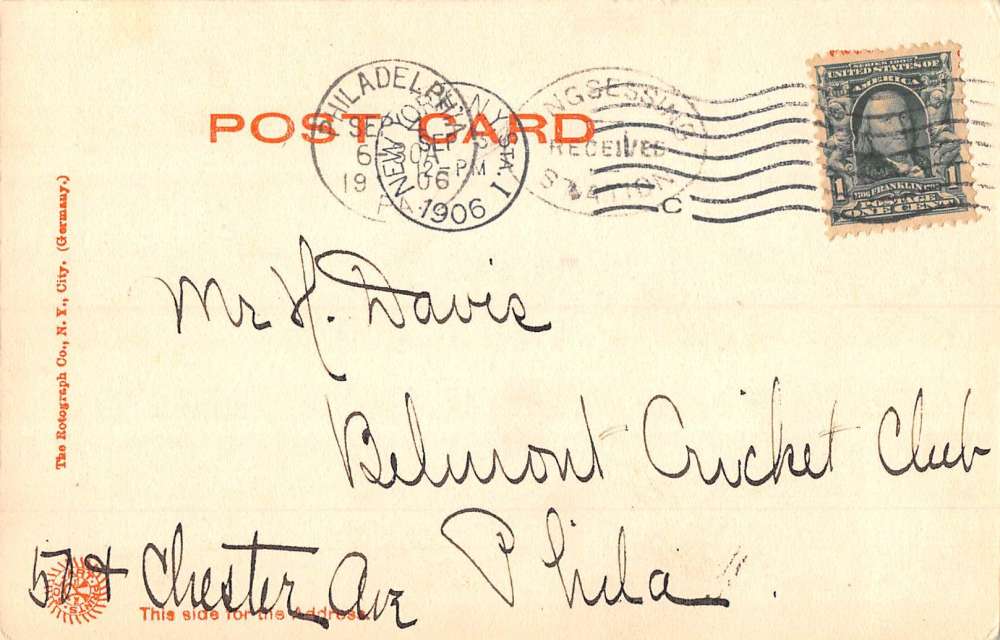 POST CARD
PHILADELPHIA
SEP
6
19 06
NEW YORK, N.Y. STA. 1
SEP
12-PM
1906
KINGSESSING
RECEIVED
STATION
C
SERIES 1902
UNITED STATES OF
AMERICA
1 FRANKLIN 1
POSTAGE
ONE CENT
The Rotograph Co., N. Y., City. (Germany.)
Mr H. Davis
Belmont Cricket Club
57 & Chester Ave Phila.
This side for the Address.